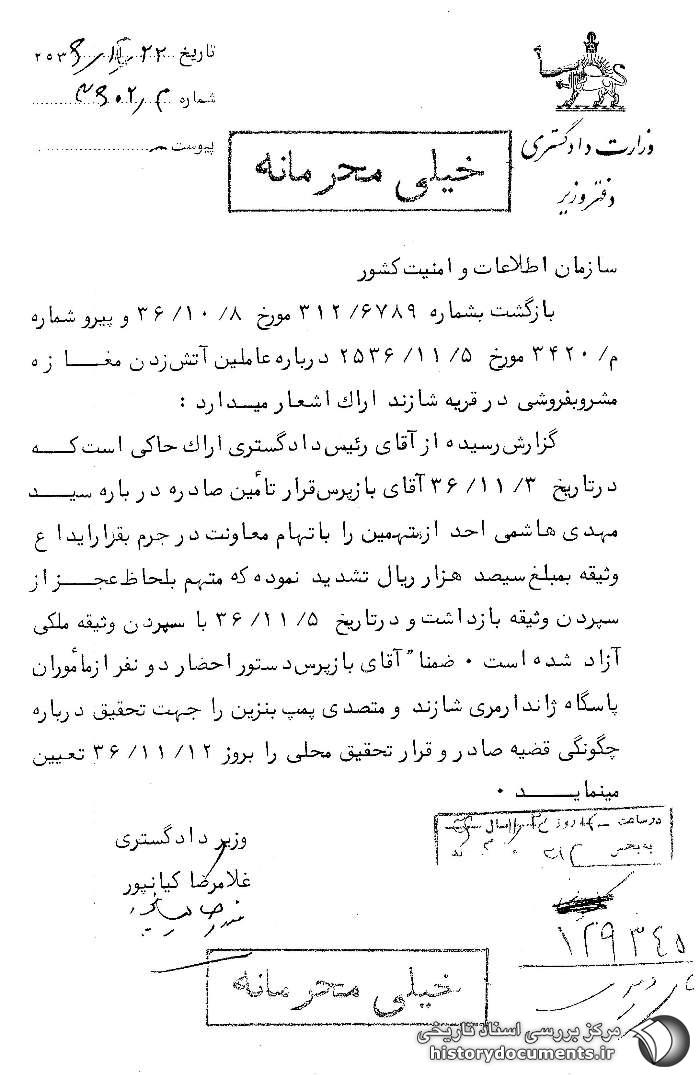 تاریخ ۲۲ ۲۵۳۶
شماره
پیوست
وزارت دادگستری
دفتر وزیر
خیلی محرمانه
سازمان اطلاعات و امنیت کشور
بازگشت بشماره ۳۱۲/۶۷۸۹ مورخ ۳۶/۱۰/۸ و پیرو شماره
م/۳۴۲۰ مورخ ۲۵۳۶/۱۱/۵ درباره عاملین آتش زدن مغازه
مشروبفروشی در قریه شازند اراک اشعار میدارد :
گزارش رسیده از آقای رئیس دادگستری اراک حاکی است که
درتاریخ ۳۶/۱۱/۳ آقای بازپرس قرار تأمین صادره درباره سید
مهدی هاشمی احد ازمتهمین را باتهام معاونت در جرم بقرارایداع
وثیقه بمبلغ سیصد هزار ریال تشدید نموده که متهم بلحاظ عجز از
سپردن وثیقه بازداشت و درتاریخ ۳۶/۱۱/۵ با سپردن وثیقه ملکی
آزاد شده است ۰ ضمنا" آقای بازپرس دستور احضار دو نفر ازمأموران
پاسگاه ژاندارمری شازند و متصدی پمپ بنزین را جهت تحقیق درباره
چگونگی قضیه صادر و قرار تحقیق محلی را بروز ۳۶/۱۱/۱۲ تعیین
مینماید ۰
وزیر دادگستری
غلامرضا کیانپور
در ساعت روز
۱۲۹۳۴۵
خیلی محرمانه
مرکز بررسی اسناد تاریخی
historydocuments.ir